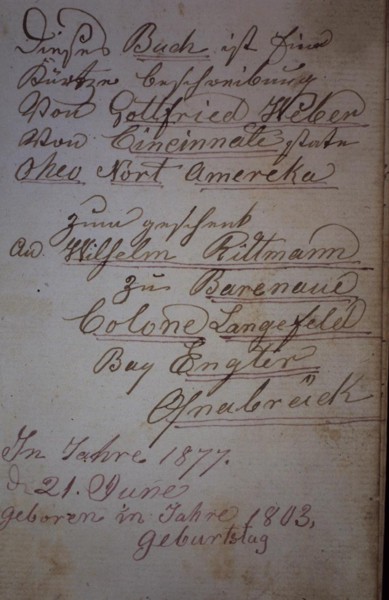 Dieses Buch ist eine
Kürtze beschreibung
Von Gottfried Weber
Von Cincinnate state
Oheo Nort Amereka
zum geschenk
an Wilhelm Rittmann
zu Barenaue
Colone Langefeld
Bay Engter
Osnabrück
In Jahre 1877.
d 21. June
geboren in Jahre 1803,
geburtstag